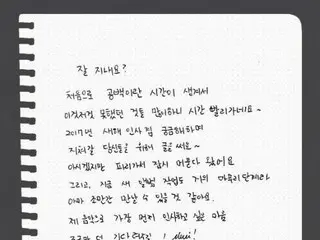 잘 지내요?
처음으로 공백이란 시간이 생겨서
이것저것 못했던 것들 많이하니 시간 빨리가네요~
2017년 새해 인사 겸 궁금해하며
지쳐갈 당신들을 위해 글을 써요~
아시겠지만 파리가서 잠시 머물다 왔어요
그리고, 지금 새 앨범 작업도 거의 마무리 단계라
아마 조만간 만날 수 있을 것 같아요.
제 음악으로 가장 먼저 인사하고 싶은 마음
조금만 더 기다려줘